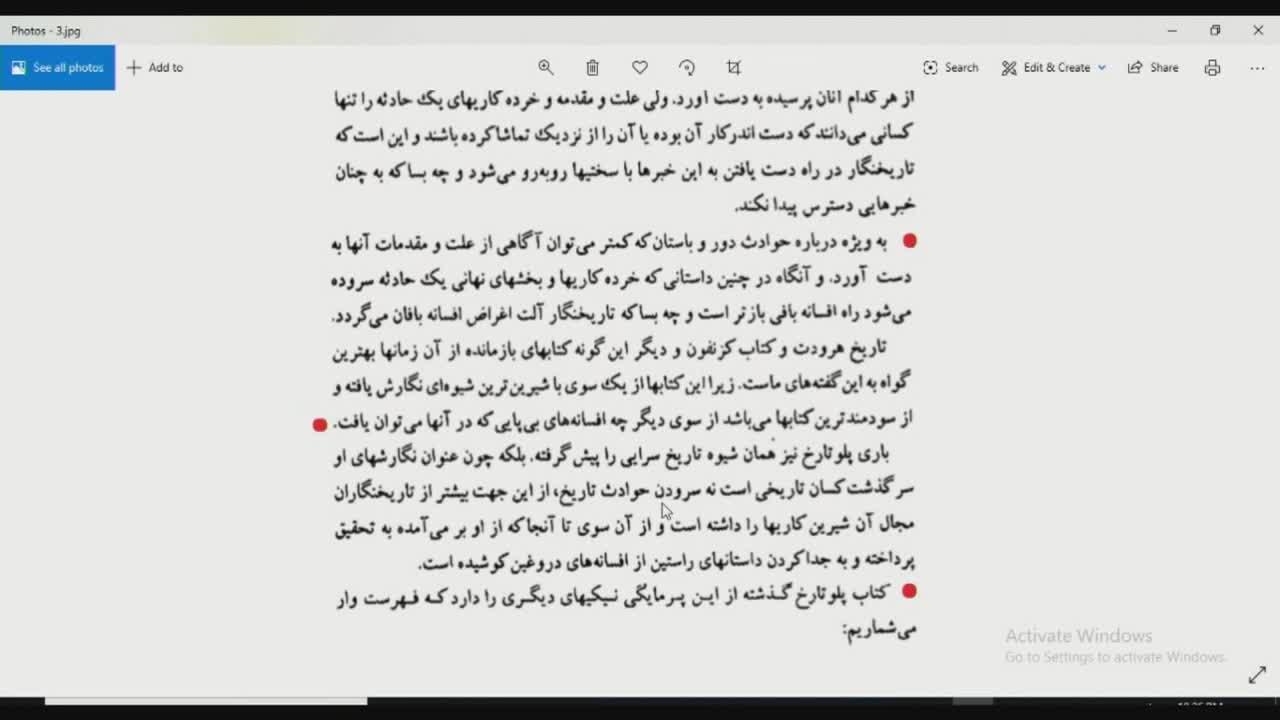 Photos - 3.jpg
See all photos
Add to
Search
Edit & Create
Share
از هر کدام آنان پرسیده به دست آورد. ولی علت و مقدمه و خرده کاریهای یک حادثه را تنها
کسانی می‌دانند که دست اندرکار آن بوده یا آن را از نزدیک تماشا کرده باشند و این است که
تاریخنگار در راه دست یافتن به این خبرها با سختیها روبه‌رو می‌شود و چه بسا که به چنان
خبرهایی دسترس پیدا نکند.
به ویژه درباره حوادث دور و باستان که کمتر می‌توان آگاهی از علت و مقدمات آنها به
دست آورد. و آنگاه در چنین داستانی که خرده کاریها و بخشهای نهانی یک حادثه سروده
می‌شود راه افسانه بافی بازتر است و چه بسا که تاریخنگار آلت اغراض افسانه بافان می‌گردد.
تاریخ هرودت و کتاب کزنفون و دیگر این گونه کتابهای بازمانده از آن زمانها بهترین
گواه به این گفته‌های ماست. زیرا این کتابها از یک سوی با شیرین‌ترین شیوه‌ای نگارش یافته و
از سودمندترین کتابها می‌باشد از سوی دیگر چه افسانه‌های بی‌پایی که در آنها می‌توان یافت.
باری پلوتارخ نیز همان شیوه تاریخ سرایی را پیش گرفته. بلکه چون عنوان نگارشهای او
سرگذشت کسان تاریخی است نه سرودن حوادث تاریخ، از این جهت بیشتر از تاریخنگاران
مجال آن شیرین کاریها را داشته است و از آن سوی تا آنجا که از او بر می‌آمده به تحقیق
پرداخته و به جدا کردن داستانهای راستین از افسانه‌های دروغین کوشیده است.
کتاب پلوتارخ گذشته از این پرمایگی نیکیهای دیگری را دارد که فهرست وار
می‌شماریم:
Activate Windows
Go to Settings to activate Windows.